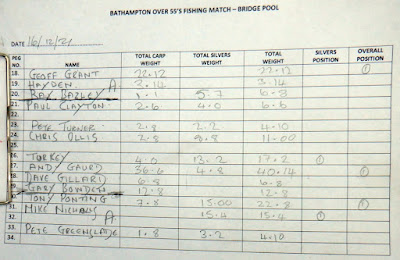 BATHAMPTON OVER 55'S FISHING MATCH – BRIDGE POOL
DATE 16/12/21
PEG NO. NAME TOTAL CARP WEIGHT TOTAL SILVERS WEIGHT TOTAL WEIGHT SILVERS POSITION OVERALL POSITION
18. GEOFF GRANT 22.12 22.12 ①
19. HAYDEN A 3.14 3.14
20. RAY BAZLEY 1.1 5.7 6.8
21. PAUL CLAYTON 2.6 4.0 6.6
22.
23. PETE TURNER 2.8 2.2 4.10
24. CHRIS OLLIS 2.8 8.8 11.00
25.
26. TORKEY 4.0 13.2 17.2 ①
27. ANDY GAURD 36.6 4.8 40.14 ①
28. DAVE GILLARD 6.8 6.8
29. GARY BOWDEN 12.8 12.8
30. TONY PONTING 7.8 15.00 22.8 ①
31. MIKE NICHOLLS
32. A 15.4 15.4 ①
33. PETE GREENSLADE 1.8 3.2 4.10
34.